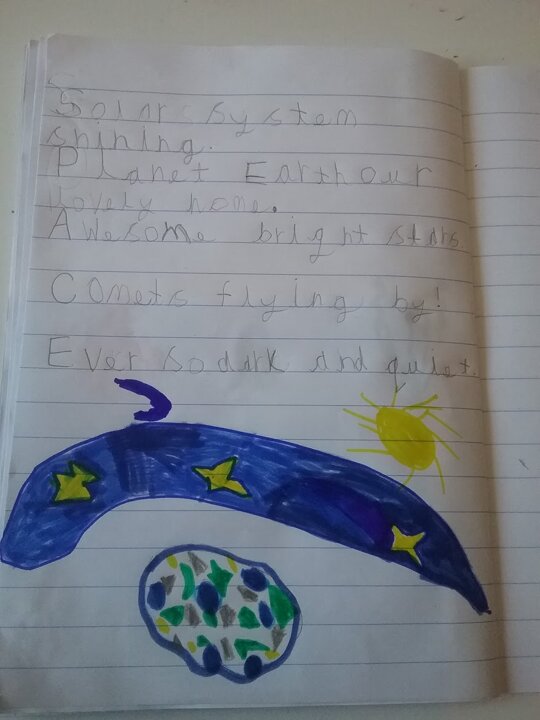 S
Solar system
shining.
Planet Earth our
lovely home.
Awesome bright stars
Comets flying by!
Ever so dark and quiet.